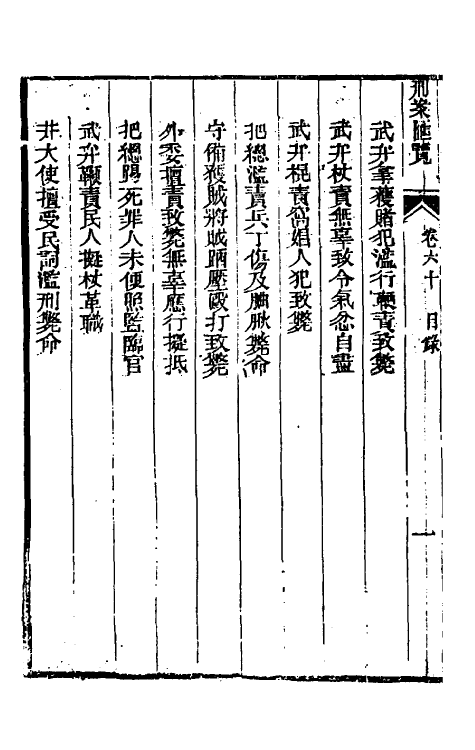 刑案匯覽 卷六十 目錄 一
武弁拏獲賭犯濫行棍責致斃
武弁杖責無辜致令氣忿自盡
武弁棍責窩娼人犯致斃
把總濫責兵丁傷及臁肕斃命
守備獲賊將賊跴壓毆打致斃
外委擅責致斃無辜應行擬抵
把總陽死罪人未便照監臨官
武弁鞭責民人擬杖革職
井大使擅受民詞濫刑斃命